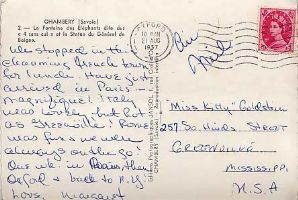 CHAMBERY (Savoie)
2 — La Fontaine des Eléphants dite des
« 4 sans cul » et la Statue du Général de
Boigne.
OXFORD
1957
We stopped in this
charming French town
for lunch. Have just
arrived in Paris —
magnifique! Italy
was lovely but hot
as Greenville! Rome
was fun & we're
always on the go
One wk. in Paris, then
Oxford & back to N.Y.
Love, Margaret
Air
Mail
Miss "Kitty" Goldstein
257 So. Hinds Street
Greenville
Mississippi
U.S.A